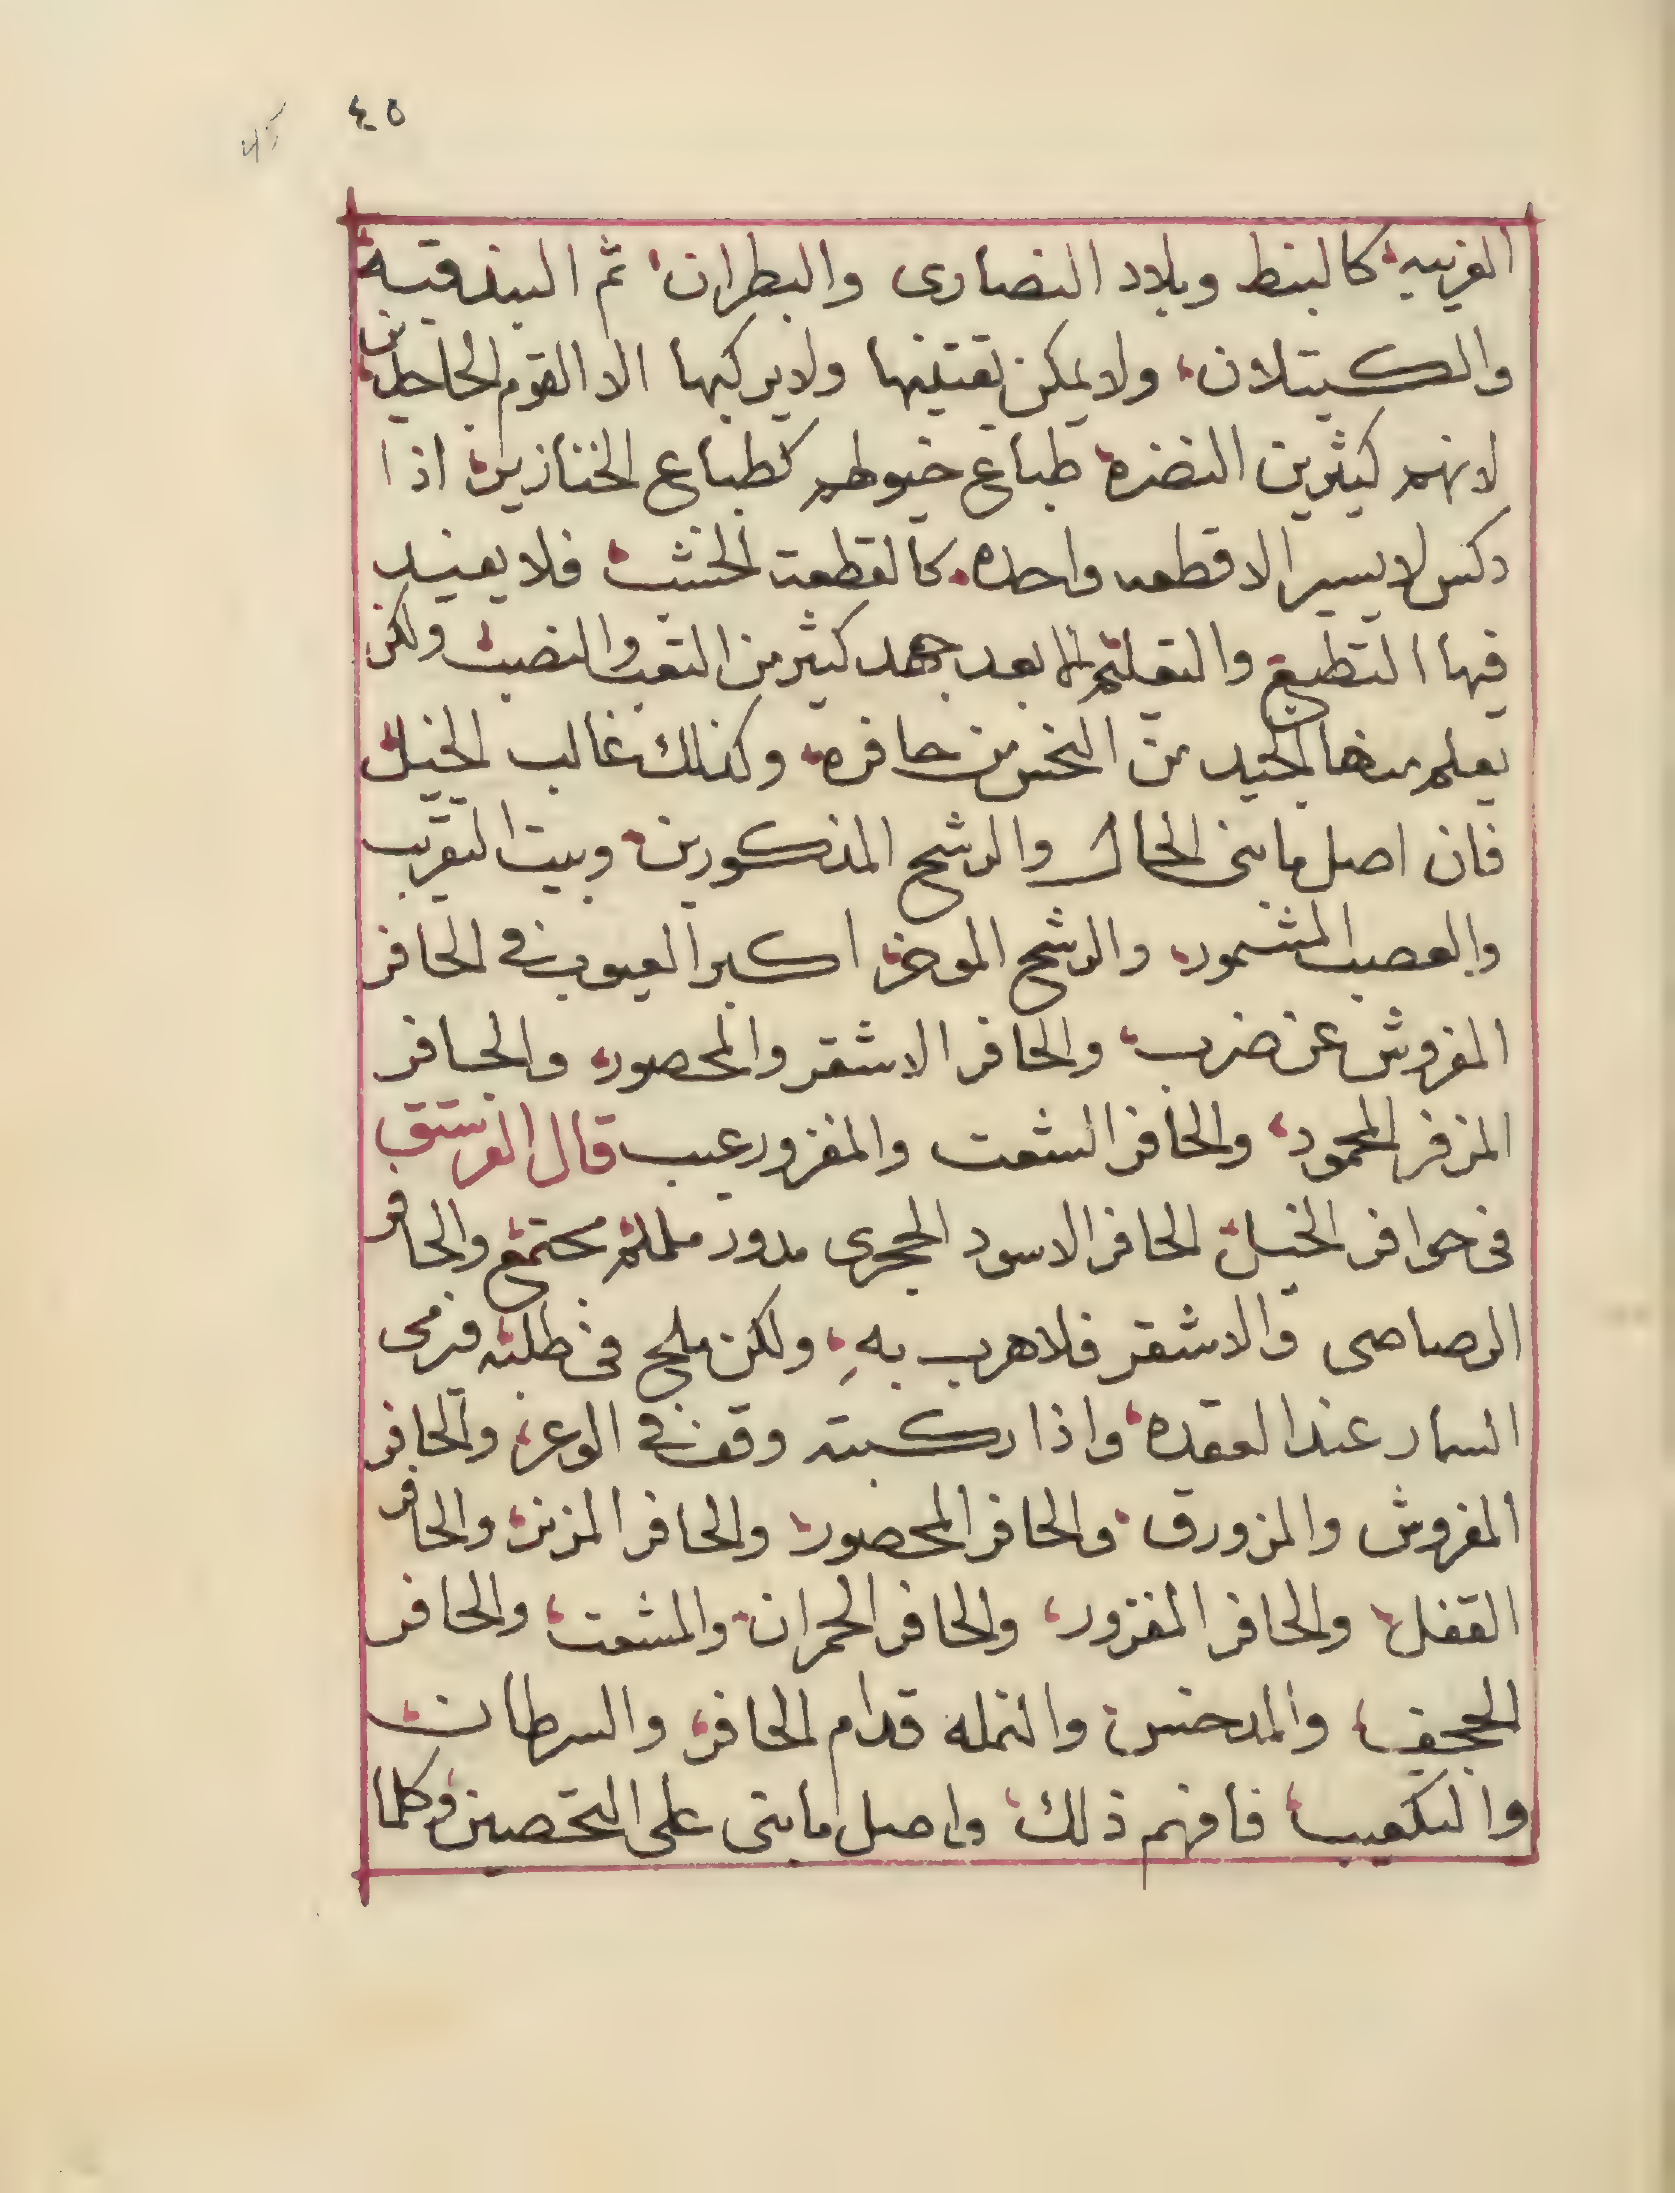 ٤٥
45
الغربيه كالبنط وبلاد النصارى والبطران ثم البندقيه
والكيتلان ولا يمكن تقتنيها ولا يركبها الا القوم الجاهلين
لانهم كيثرين النضره طباع خيولهم كطباع الخنازير اذا
دكس لا يسير الا قطعه واحده كالقطعت الخشب فلا يفيد
فيها التطبع والتعليم الا بعد جهد كثير من التعب والنصب ولكن
يعلم منها الجيد من النخس من حافره وكذلك غالب الخيل
فان اصل ما بنى الحال والرشح المذكورين وبيت التقريب
والعصب المشمور والرشح الموخر اكبر العيوب في الحافر
المفروش عن ضرب والحافر الاشقر والمحصور والحافر
المزفر المحمود والحافر الشعت والمفزور عيب قال الفرستق
فى حوافر الخيل الحافر الاسود الحجرى مدور ململم مجتمع والحافر
الرصاصى والاشقر فلا هرب به ولكن مليح فى طلبه فيرمى
السمار عند العقده واذا ركبته وقف في الوعر والحافر
المفروش والمزورق والحافر المحصور والحافر المزنر والحافر
القفل والحافر المفزور والحافر الحمران والمشعت والحافر
الحجيف والمدحس والنمله قدام الحافر والسرطان
والتكعيب فافهم ذلك واصل ما بنى على التحصين وكلما